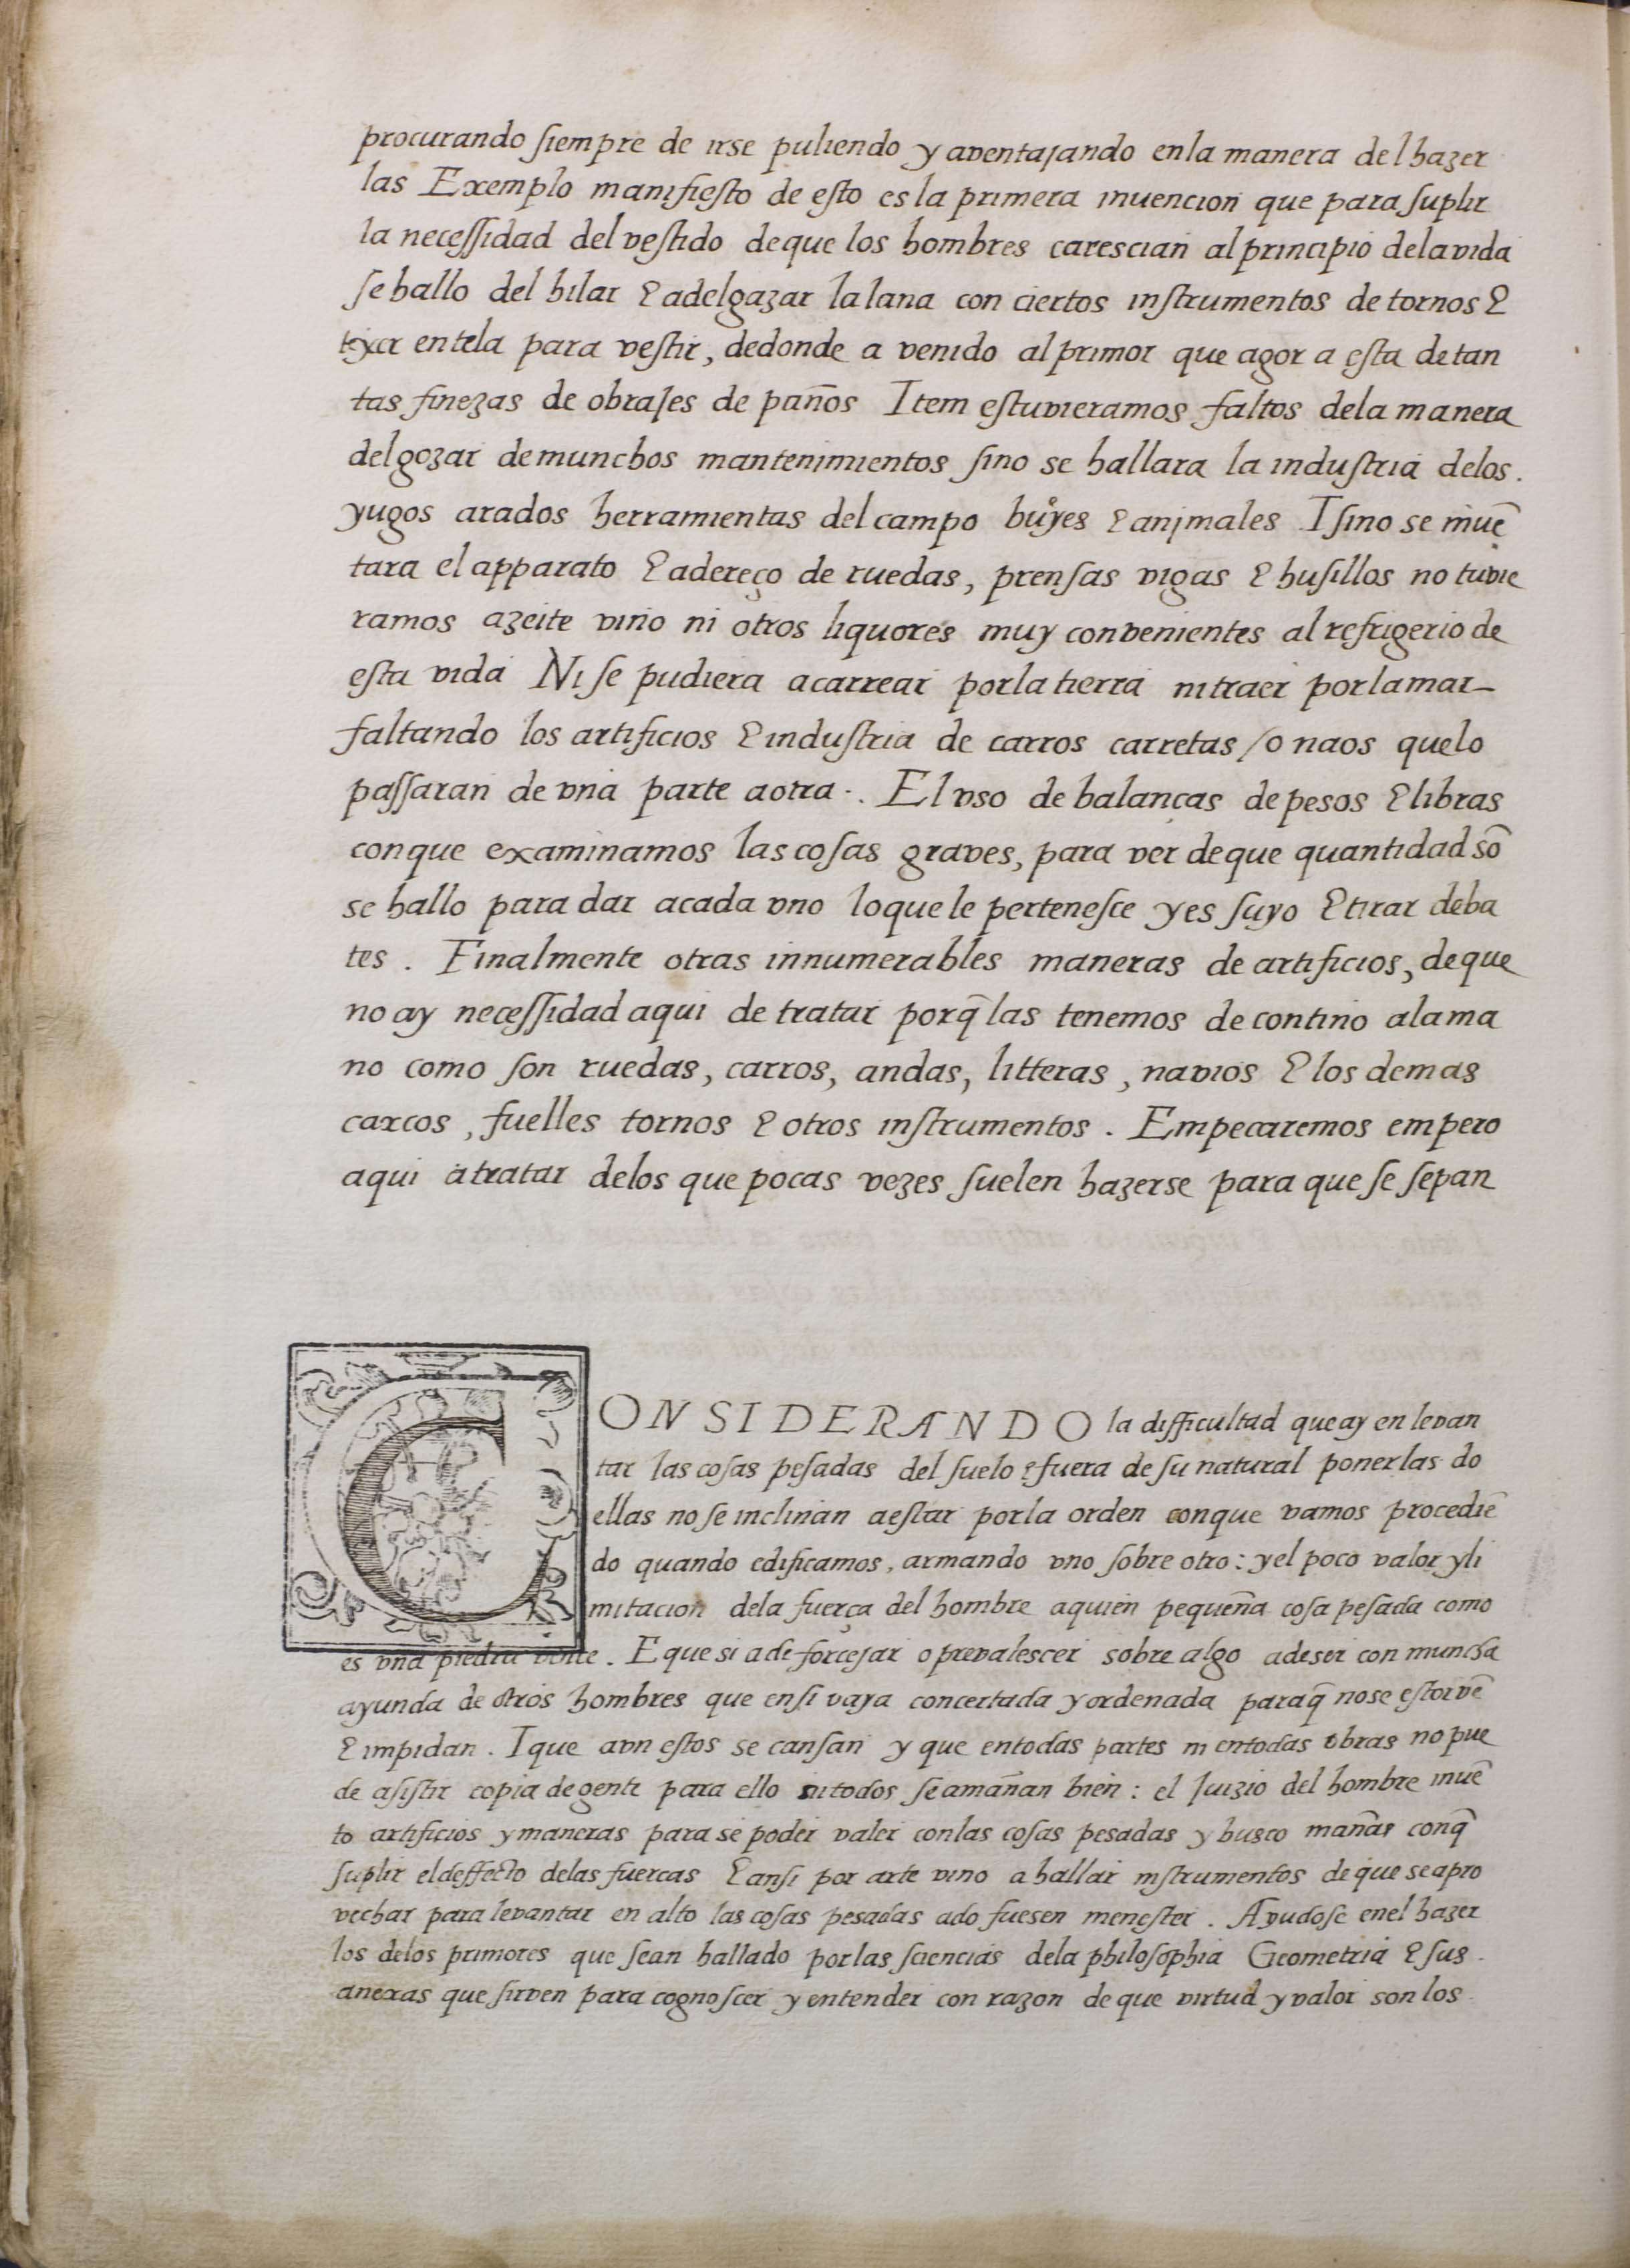 procurando siempre de irse puliendo y aventajando enla manera del hazer
las Exemplo manifiesto de esto es la primera inuencion que para suplir
la necessidad del vestido deque los hombres carescian al principio dela vida
se hallo del hilar & adelgazar la lana con ciertos instrumentos de tornos &
texer en tela para vestir, dedonde a venido al primor que agora esta de tan
tas finezas de obrajes de paños Item estuvieramos faltos dela manera
del gozar de munchos mantenimientos sino se hallara la industria delos.
yugos arados herramientas del campo buẙes & animales I sino se inuē
tara el apparato & adereço de ruedas, prensas vigas & husillos no tuvie
ramos azeite vino ni otros liquores muy convenientes al refrigerio de
esta vida Ni se pudiera acarrear por la tierra ni traer por la mar_
faltando los artificios & industria de carros carretas / o naos quelo
passaran de vna parte a otra ·. El vso de balanças de pesos & libras
con que examinamos las cosas graves, para ver de que quantidad sō
se hallo para dar acada vno lo que le pertenesce y es suyo & tirar deba
tes . Finalmente otras innumerables maneras de artificios, de que
no ay necessidad aqui de tratar porq̄ las tenemos de contino ala ma
no como son ruedas, carros, andas, litteras, navios & los demas
carcos, fuelles tornos & otros instrumentos . Empecaremos empero
aqui a tratar delos que pocas vezes suelen hazerse para que se sepan
CONSIDERANDO la difficultad que ay en levan
tar las cosas pesadas del suelo & fuera de su natural ponerlas do
ellas no se inclinan a estar por la orden con que vamos procediē
do quando edificamos, armando vno sobre otro : y el poco valor y li
mitacion dela fuerça del hombre aquien pequeña cosa pesada como
es vna piedra vence . E que si a de forcejar o prevalescer sobre algo a de ser con muncha
ayunda de otros hombres que en si vaya concertada y ordenada paraq̄ no se estorvē
& impidan . I que avn estos se cansan y que entodas partes ni entodas obras no pue
de asistir copia de gente para ello ni todos se amañan bien : el juizio del hombre inuē
to artificios y maneras para se poder valer con las cosas pesadas y busco mañas conq̄
suplir el deffecto delas fuercas & ansi por arte vino a hallar instrumentos de que se apro
vechar para levantar en alto las cosas pesadas ado fuesen menester . Ayudose enel hazer
los delos primores que sean hallado por las sciencias dela philosophia Geometria & sus
anexas que sirven para cognoscer y entender con razon de que virtud y valor son los